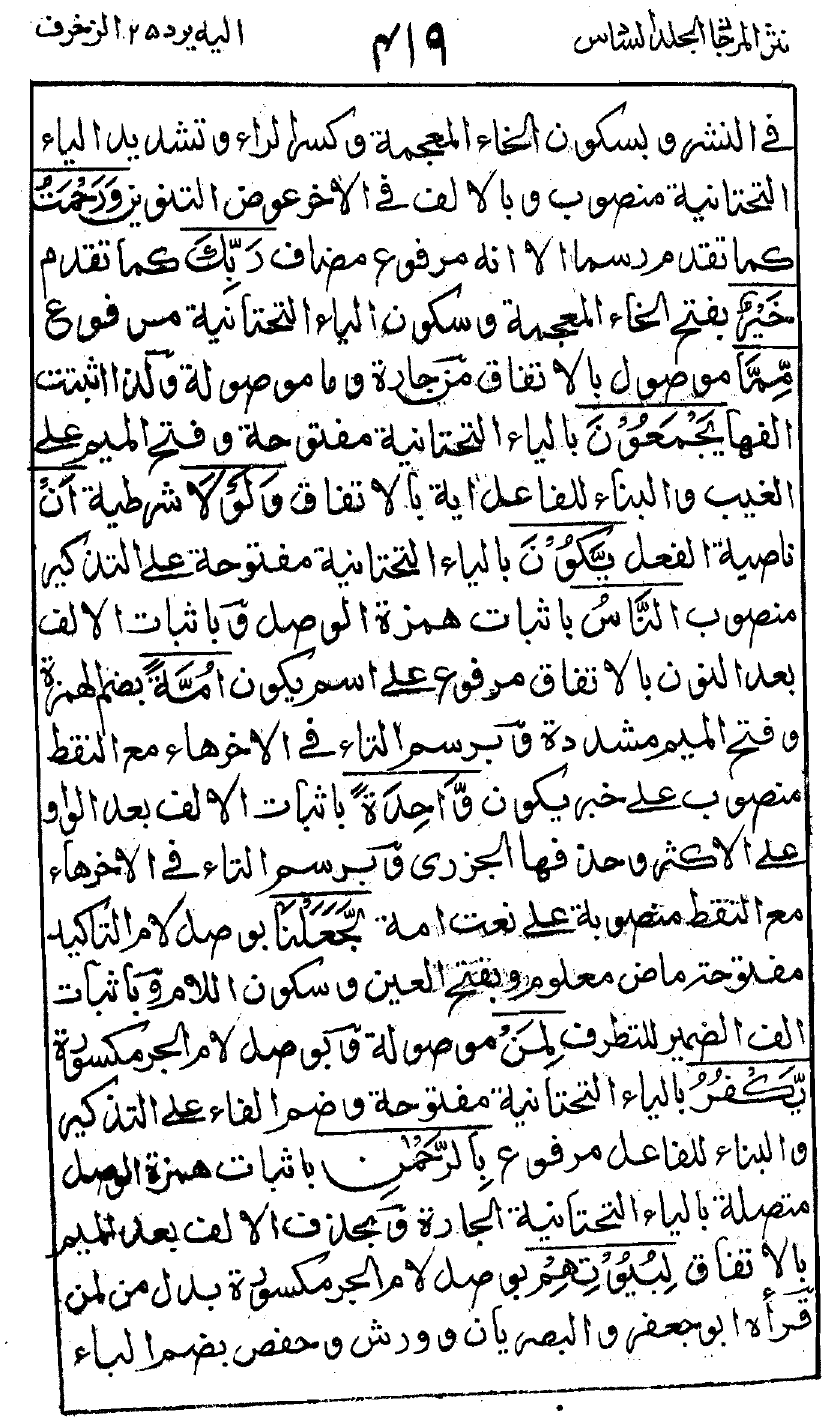 نثر المرجان المجلد السادس
٤١٩
اليه يرد ٢٥ الزخرف
في النشر و بسكون الخاء المعجمة و كسر الراء و تشديد الياء
التحتانية منصوب و بالالف في الاخر عوض التنوين وَرَحْمَتُ
كما تقدم رسما الا انه مرفوع مضاف رَبِّكَ كما تقدم
خَيْرٌ بفتح الخاء المعجمة و سكون الياء التحتانية مرفوع
مِّمَّا موصول بالاتفاق مِنْ جارة و ما موصولة وَلذا اثبتت
الفها يَجْمَعُوْنَ بالياء التحتانية مفتوحة و فتح الميم على
الغيب و البناء للفاعل اية بالاتفاق وَلَوْلَا شرطية اَنْ
ناصبة الفعل يَّكُوْنَ بالياء التحتانية مفتوحة على التذكير
منصوب النَّاسُ باثبات همزة الوصل وَباثبات الالف
بعد النون بالاتفاق مرفوع على اسم يكون اُمَّةً بضم الهمزة
و فتح الميم مشددة وَبرسم التاء في الاخر هاء مع النقط
منصوب على خبر يكون وَّاحِدَةً باثبات الالف بعد الواو
على الاكثر و حذفها الجزرى وَبرسم التاء في الاخر هاء
مع النقط منصوبة على نعت امة لَّجَعَلْنَا بوصل لام التاكيد
مفتوحة ماض معلوم و بفتح العين و سكون اللام وَباثبات
الف الضمير للتطرف لِمَنْ موصولة وَبوصل لام الجر مكسورة
يَّكْفُرُ بالياء التحتانية مفتوحة و ضم الفاء على التذكير
و البناء للفاعل مرفوع بِالرَّحْمٰنِ باثبات همزة الوصل
متصلة بالياء التحتانية الجارة وَبحذف الالف بعد الميم
بالاتفاق لِبُيُوْتِهِمْ بوصل لام الجر مكسورة بدل من لمن
قَرأه ابو جعفر و البصريان و ورش و حفص بضم الباء